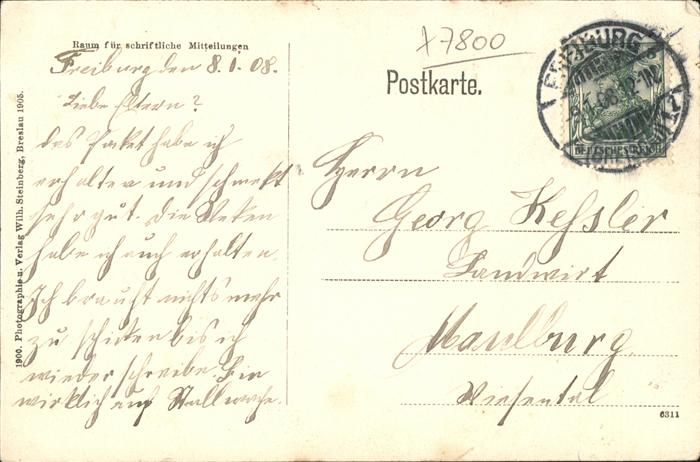 Raum für schriftliche Mitteilungen
Freiburg den 8.1.08.
Liebe Eltern?
das Packet habe ich
erhalten und schmekt
sehr gut. die
habe ich auch erhalten.
Ich brauch nichts mehr
zu schicken bis ich
wieder schreibe. Bin
wirklich auf Stallwache.
1900. Photographie u. Verlag Wilh. Steinberg, Breslau 1905.
x7800
Postkarte.
FREIBURG
DEUTSCHES REICH
Herrn
Georg Kessler
Landwirt
Maulburg
Wiesental
6311